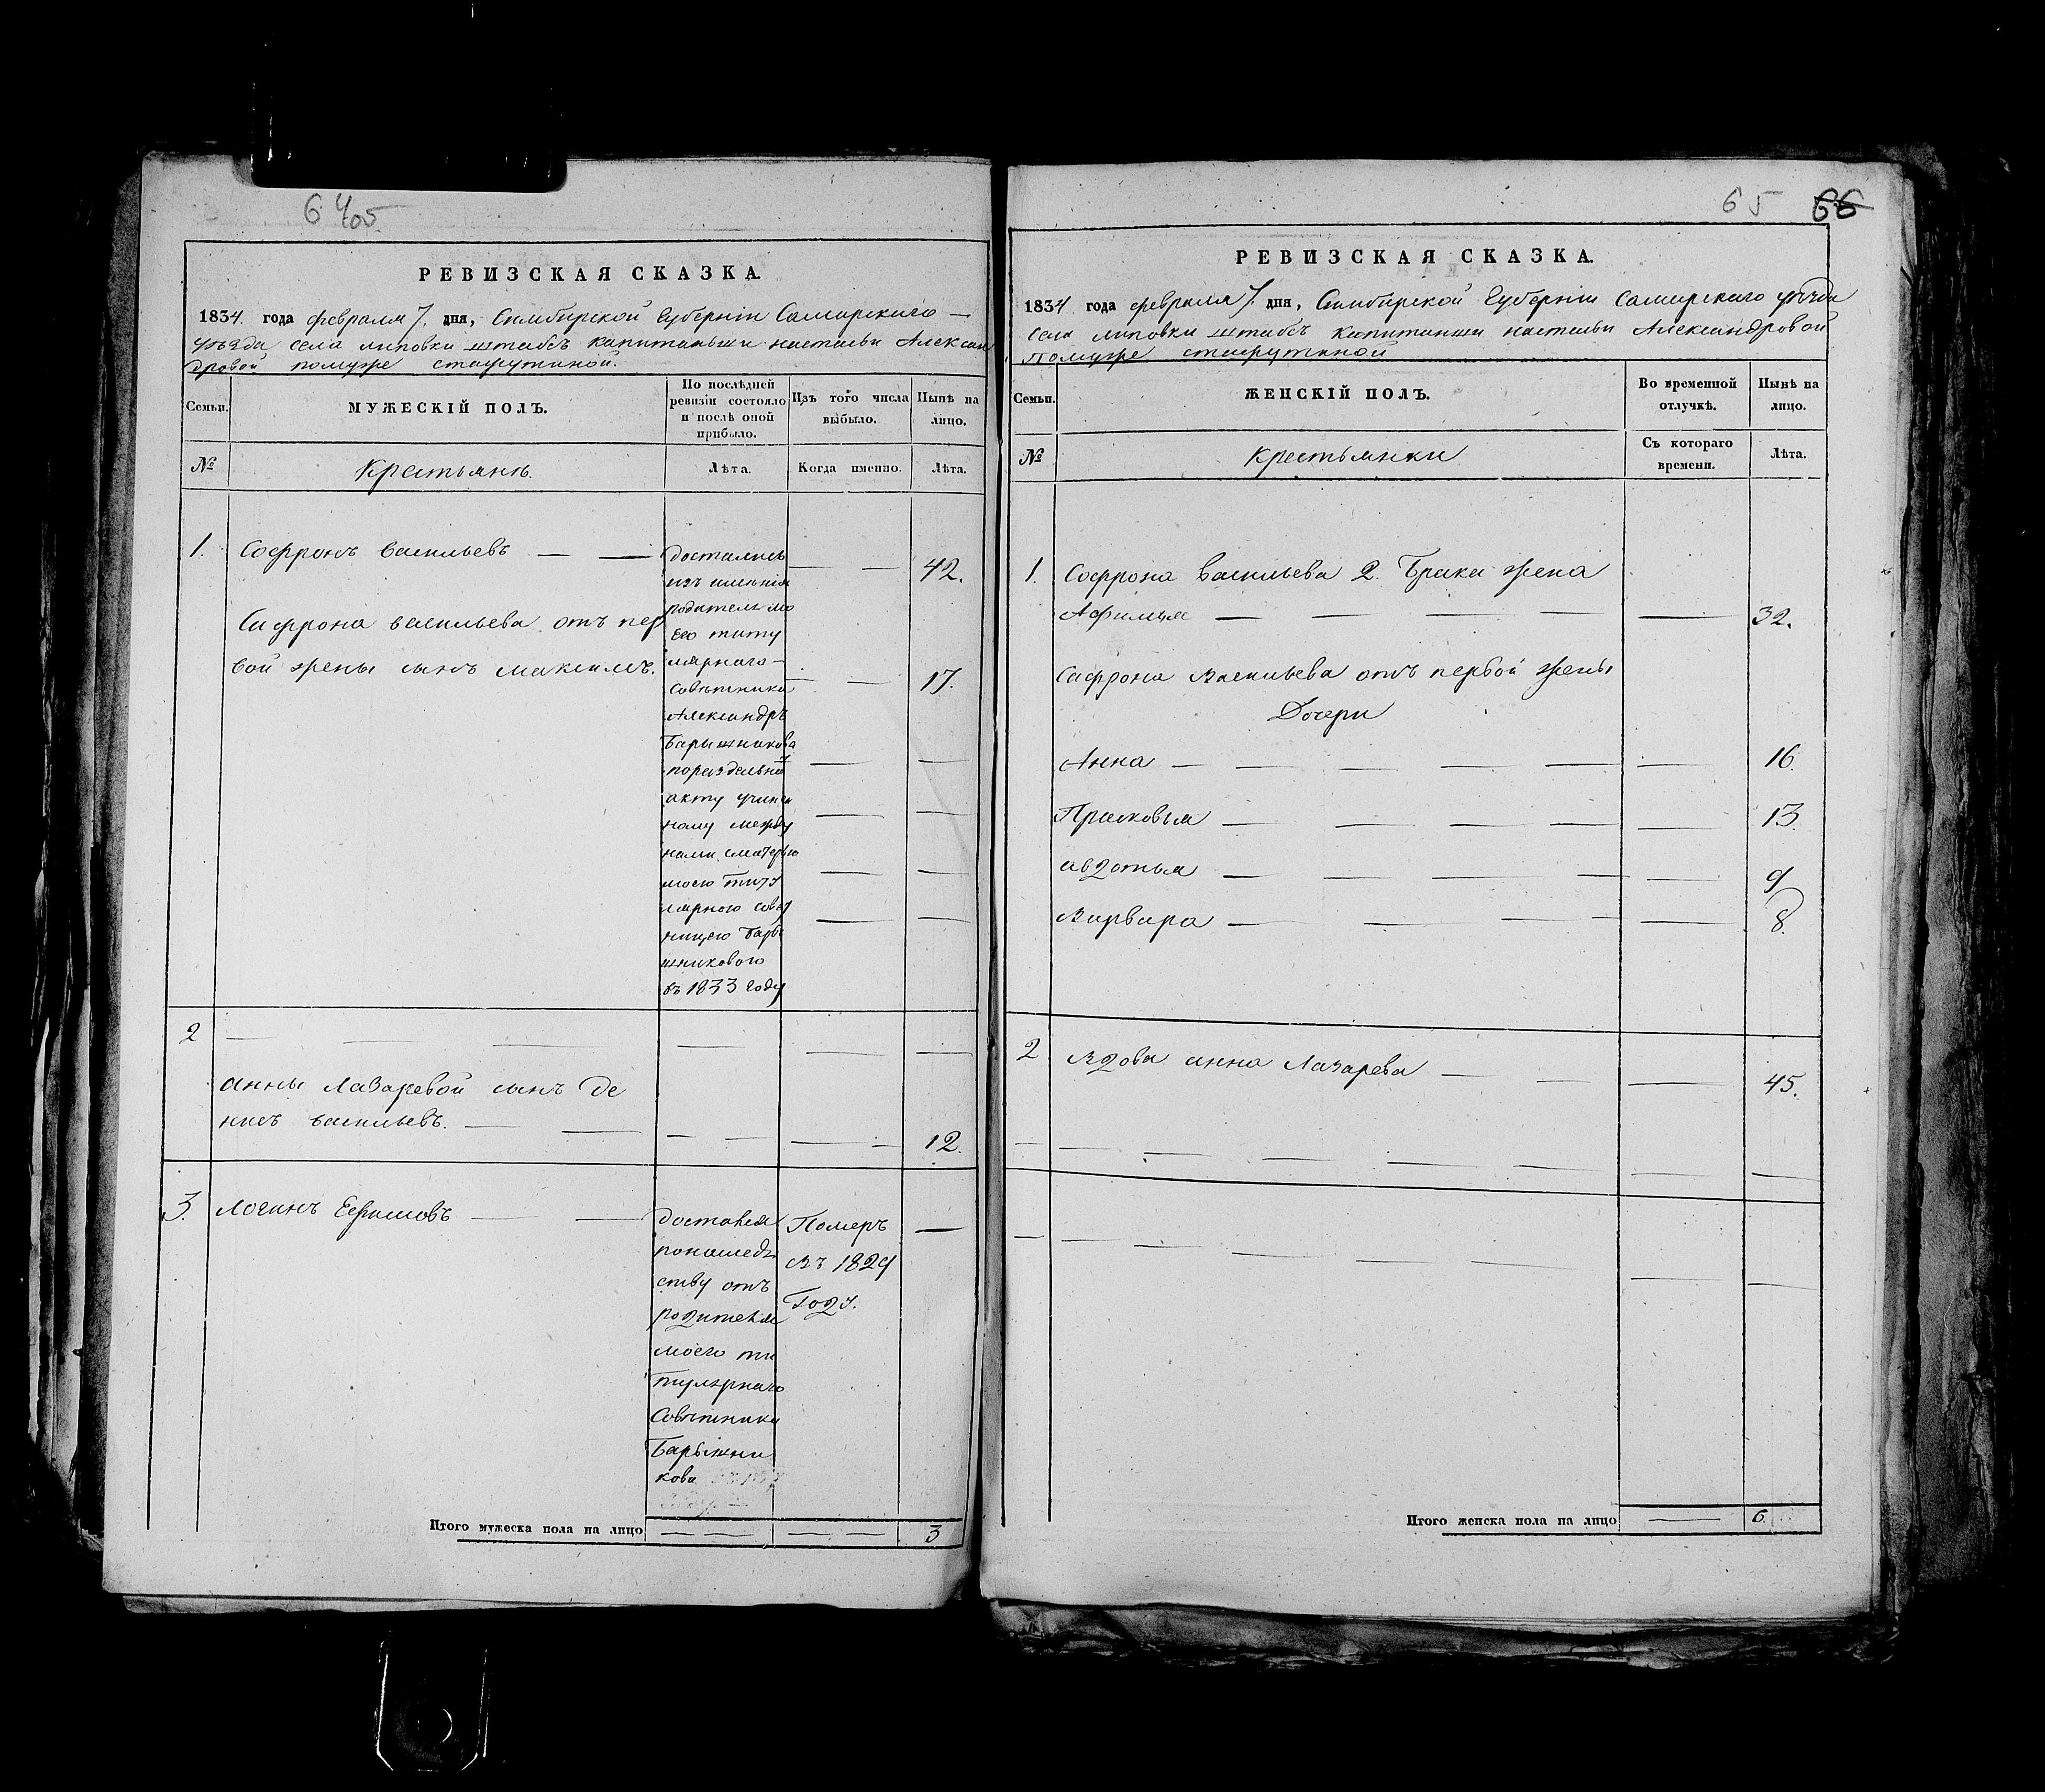 6 4 65
РЕВИЗСКАЯ СКАЗКА.
1834. года февраля 7. дня, Симбирской Губерніи Самарскаго —
уѣзда села липовки штабсъ капитанши настасьи Алексан
дровой помужѣ
По послѣдней
ревизіи состояло
и послѣ оной
прибыло.
Семьи.
МУЖЕСКІЙ ПОЛЪ.
Изъ того числа
выбыло.
Нынѣ на
лицо.
№
Крестьянѣ.
Лѣта.
Когда именно.
Лѣта.
1. Софронъ васильевъ — — 42.
Сафрона васильева отъ пер
вой жены сынъ максимъ. 17.
достались
изъ имѣнія
родителя мо
его титу
лярнаго
совѣтника
Александръ
Барышникова
пораздельно
акту учинен
ному между
нами сматерью
моею титу
лярною совѣт
ницею Бары
шниковою
въ 1833 году
2 — — —
анны Лазаревой сынъ де
нисъ васильевъ. — — 12.
3. Логинъ Ефимовъ — —
достався
понаслед
ству отъ
родителя
моего ти
тулярнаго
Совѣтника
Барышни
кова
Померъ
въ 1829
Году.
Итого мужеска пола на лицо — — — — 3
65 66
РЕВИЗСКАЯ СКАЗКА.
1834 года февраля 7. дня, Симбирской Губерніи Самарскаго уѣзда
села липовки штабсъ капитанши настасьи Александровой
помужѣ
Семьи.
ЖЕНСКІЙ ПОЛЪ.
Во временной
отлучкѣ.
Нынѣ на
лицо.
№
Крестьянки
Съ котораго
времени.
Лѣта.
1. Софрона васильева 2. Брака жена
Афимья — — — — — 32.
Сафрона васильева отъ первой жены
Дочери
Анна — — — — — — 16.
Прасковья — — — — — 13.
авдотья — — — — — 9
Варвара — — — — 8.
2 вдова анна Лазарева — — — 45.
Итого женска пола на лицо — 6